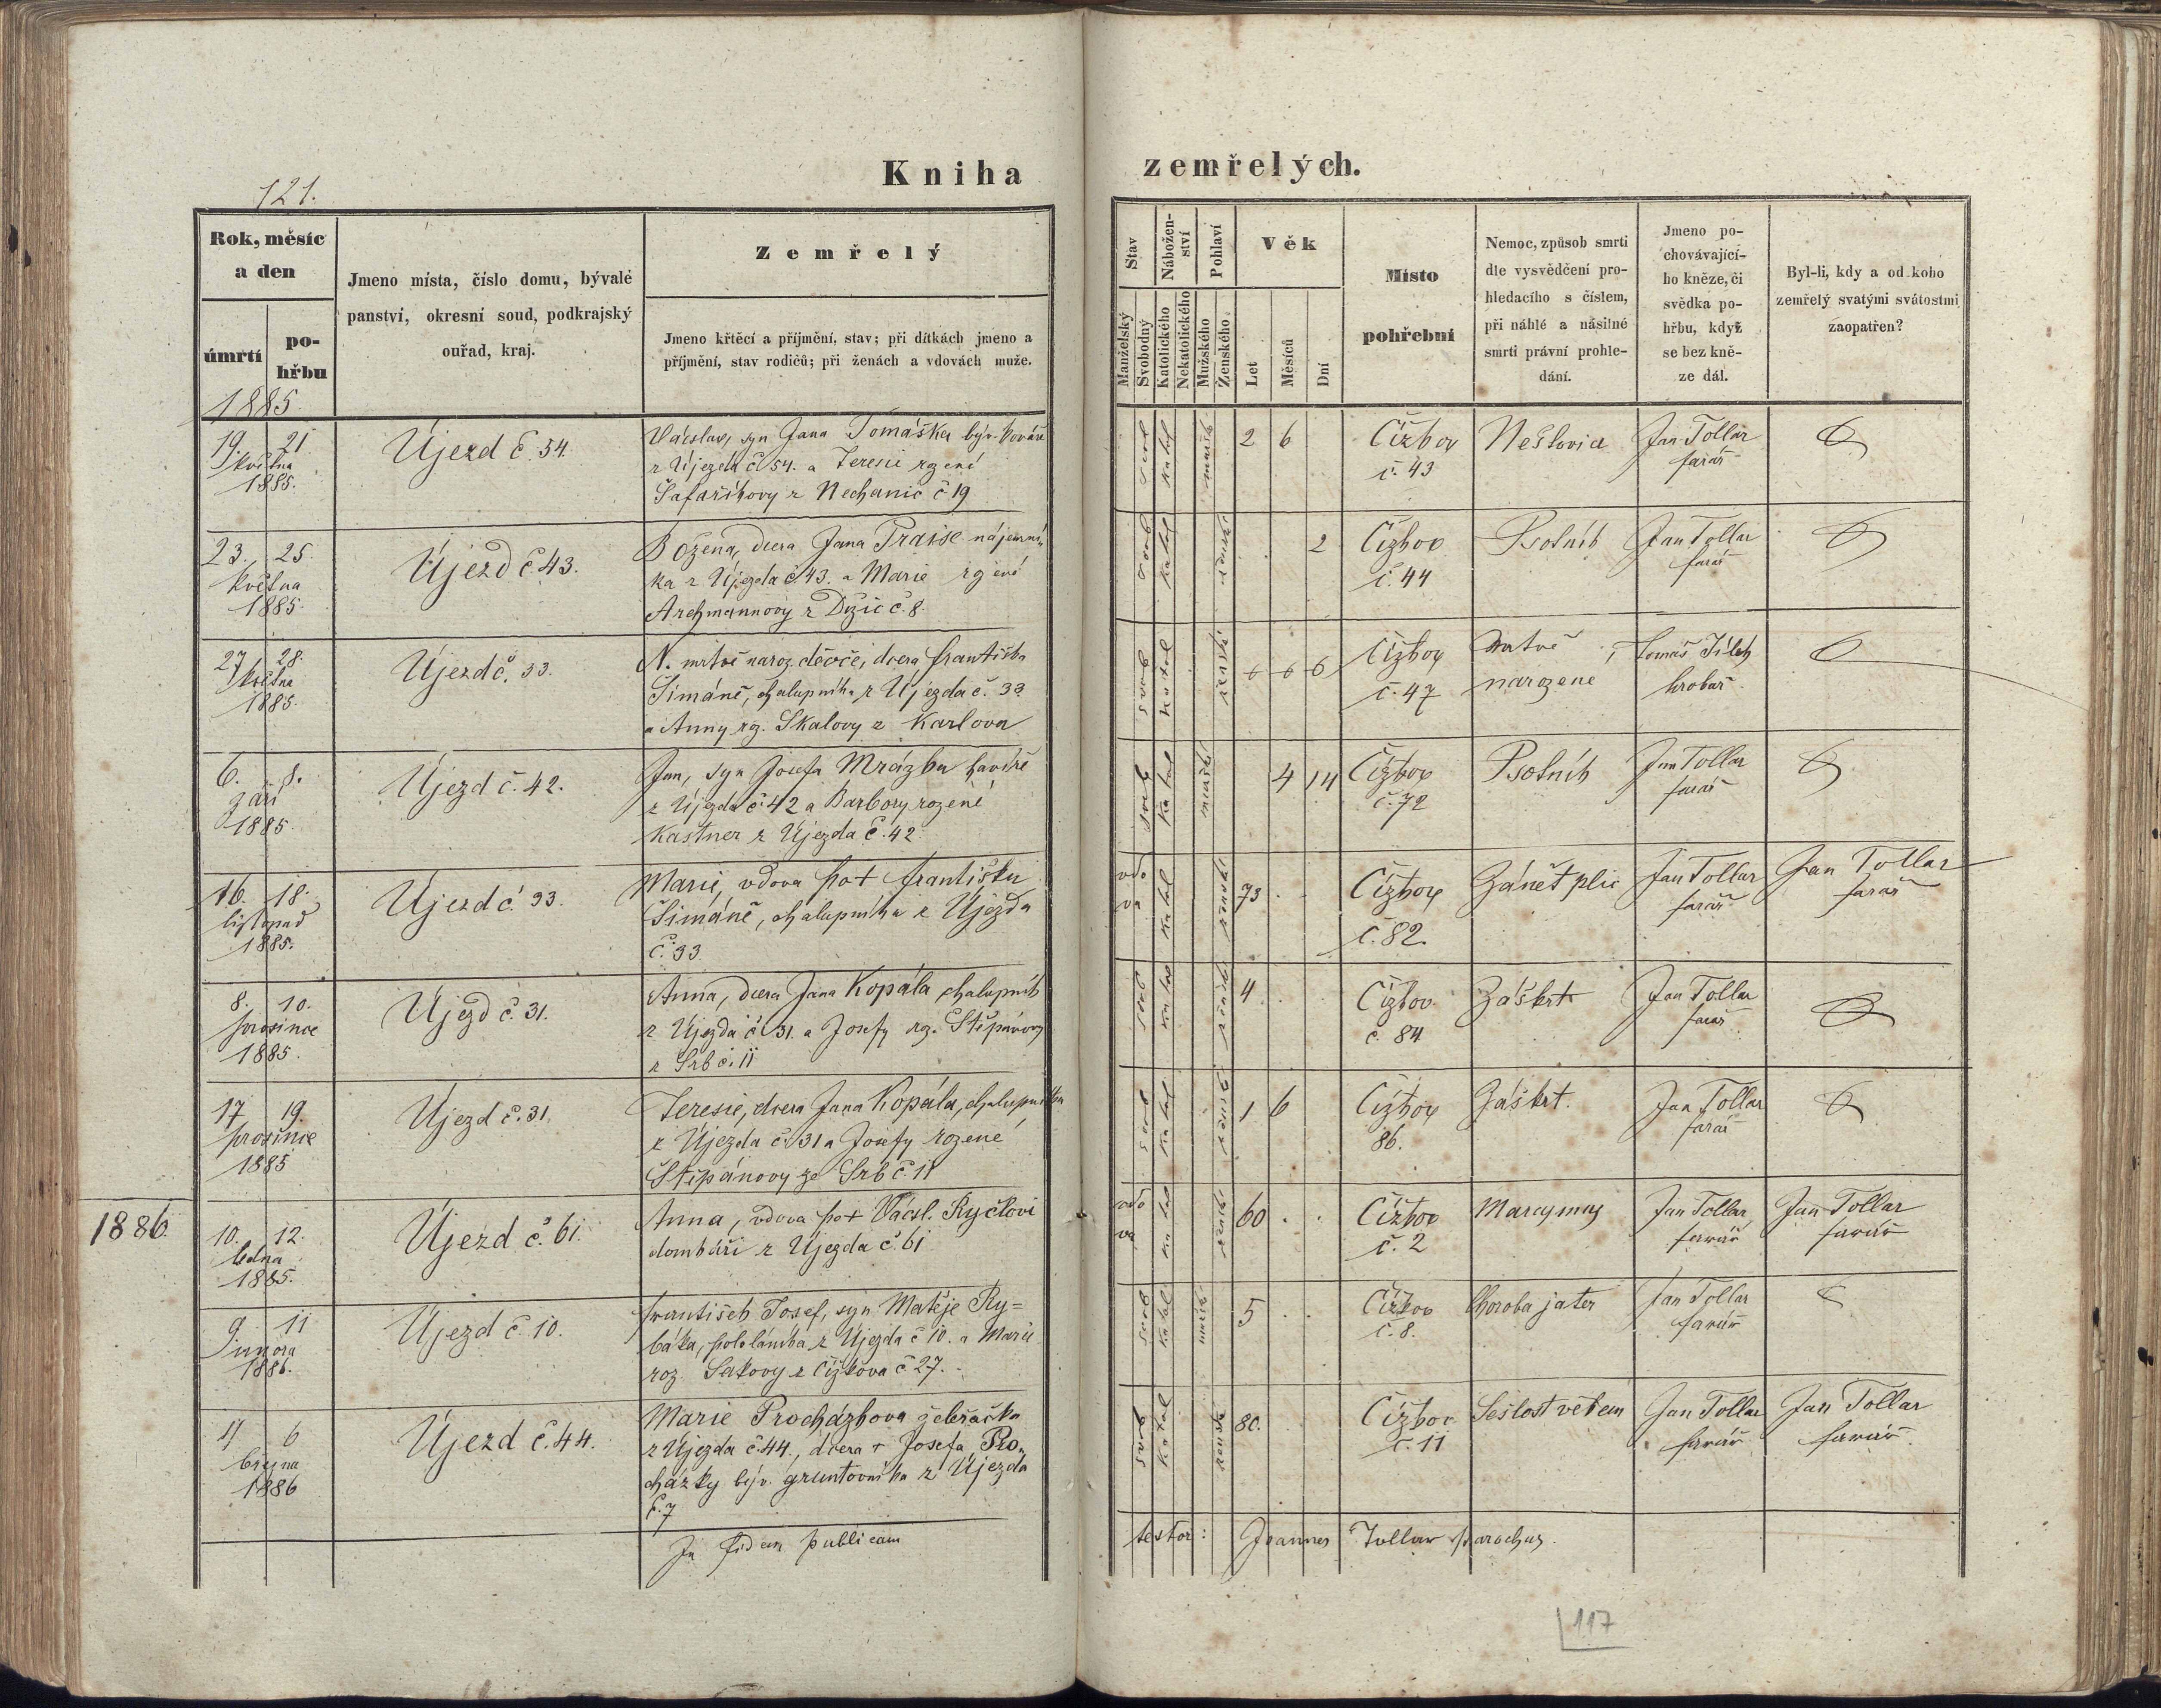 Kniha zemřelých.
121.
Rok, měsíc a den
úmrtí
pohřbu
Jmeno místa, číslo domu, bývalé panství, okresní soud, podkrajský ouřad, kraj.
Zemřelý
Jmeno křtěcí a příjmění, stav; při dítkách jmeno a příjmění, stav rodičů; při ženách a vdovách muže.
Stav
Manželský
Svobodný
Náboženství
Katolického
Nekatolického
Pohlaví
Mužského
Ženského
Věk
Let
Měsíců
Dní
Místo pohřební
Nemoc, způsob smrti dle vysvědčení prohledacího s číslem, při náhlé a násilné smrti právní prohledání.
Jmeno pochovávajícího kněze, či svědka pohřbu, když se bez kněze dál.
Byl-li, kdy a od koho zemřelý svatými svátostmi zaopatřen?
1885.
19. 21 května 1885.
Újezd č. 54.
Václav, syn Jana Tomáška býv. kováře
z Újezda č. 54. a Teresie rzené
Šafaříkovy z Nechanic č 19
svob katol mužsk
2 6
Čížkov č. 43
Neštovice
Jan Tollar farář
23. 25. května 1885.
Újezd č 43.
Božena, dcera Jana Traxse nájemní-
ka z Újezda č. 43. a Marie rzené
Archmannovy z Držic č. 8.
svob katol žensk
2
Čížkov č. 44
Psotník
Jan Tollar farář
27 28. května 1885.
Újezd č. 33.
N. mrtvě naroz. děvče, dcera Františka
Šimáně, chalupníka z Újezda č. 33
a Anny rz. Skalovy z Karlova
svob katol ženské
Čížkov č. 47
mrtvě narozene
Tomáš Jílek hrobař
6. 8. září 1885.
Újezd č. 42.
Jan, syn Josefa Mrázka havíře
z Újezda č 42 a Barbory rozené
Kastner z Újezda č. 42
svob katol mužsk
4 14
Čížkov č. 72
Psotník
Jan Tollar farář
16. 18. listopad 1885.
Újezd č. 33.
Marie, vdova po † Františku
Šimáně, chalupníka z Újezda
č. 33.
vdova katol ženské
73
Čížkov č. 82.
Zánět plic
Jan Tollar farář
Jan Tollar farář
8. 10. prosince 1885.
Újezd č. 31.
Anna, dcera Jana Kopála chalupník
z Újezda č 31. a Josefy rz. Štěpánovy
z Srb č. 11
svob katol ženské
4
Čížkov č. 84
Záškrt
Jan Tollar farář
17 19. prosince 1885
Újezd č. 31.
Teresie, dcera Jana Kopála, chalupníka
z Újezda č. 31 a Josefy rozené
Štěpánovy ze Srb č. 11
svob katol žensk
1 6
Čížkov 86.
Záškrt.
Jan Tollar farář
1886.
10. 12. ledna 1885.
Újezd č. 61.
Anna, vdova po † Václ. Ryčlovi
domkáři z Újezda č. 61
vdova katol žensk
60
Čížkov č. 2
Marasmus
Jan Tollar farář
Jan Tollar farář
9. 11 února 1886.
Újezd č. 10.
František Josef, syn Matěje Ry=
báka, pololáníka z Újezda č 10. a Marie
roz. Sakovy z Čížkova č 27.
svob katol mužsk
5
Čížkov č. 8.
Choroba jater
Jan Tollar farář
4 6 března 1886
Újezd č. 44.
Marie Procházkova žebračka
z Újezda č. 44., dcera † Josefa Pro-
cházky býv. gruntovníka z Újezda
č. 7
svob katol žensk
80.
Čížkov č. 11
Sešlost věkem
Jan Tollar farář
Jan Tollar farář.
In fidem publicam testor: Joannes Tollar parochus.
117